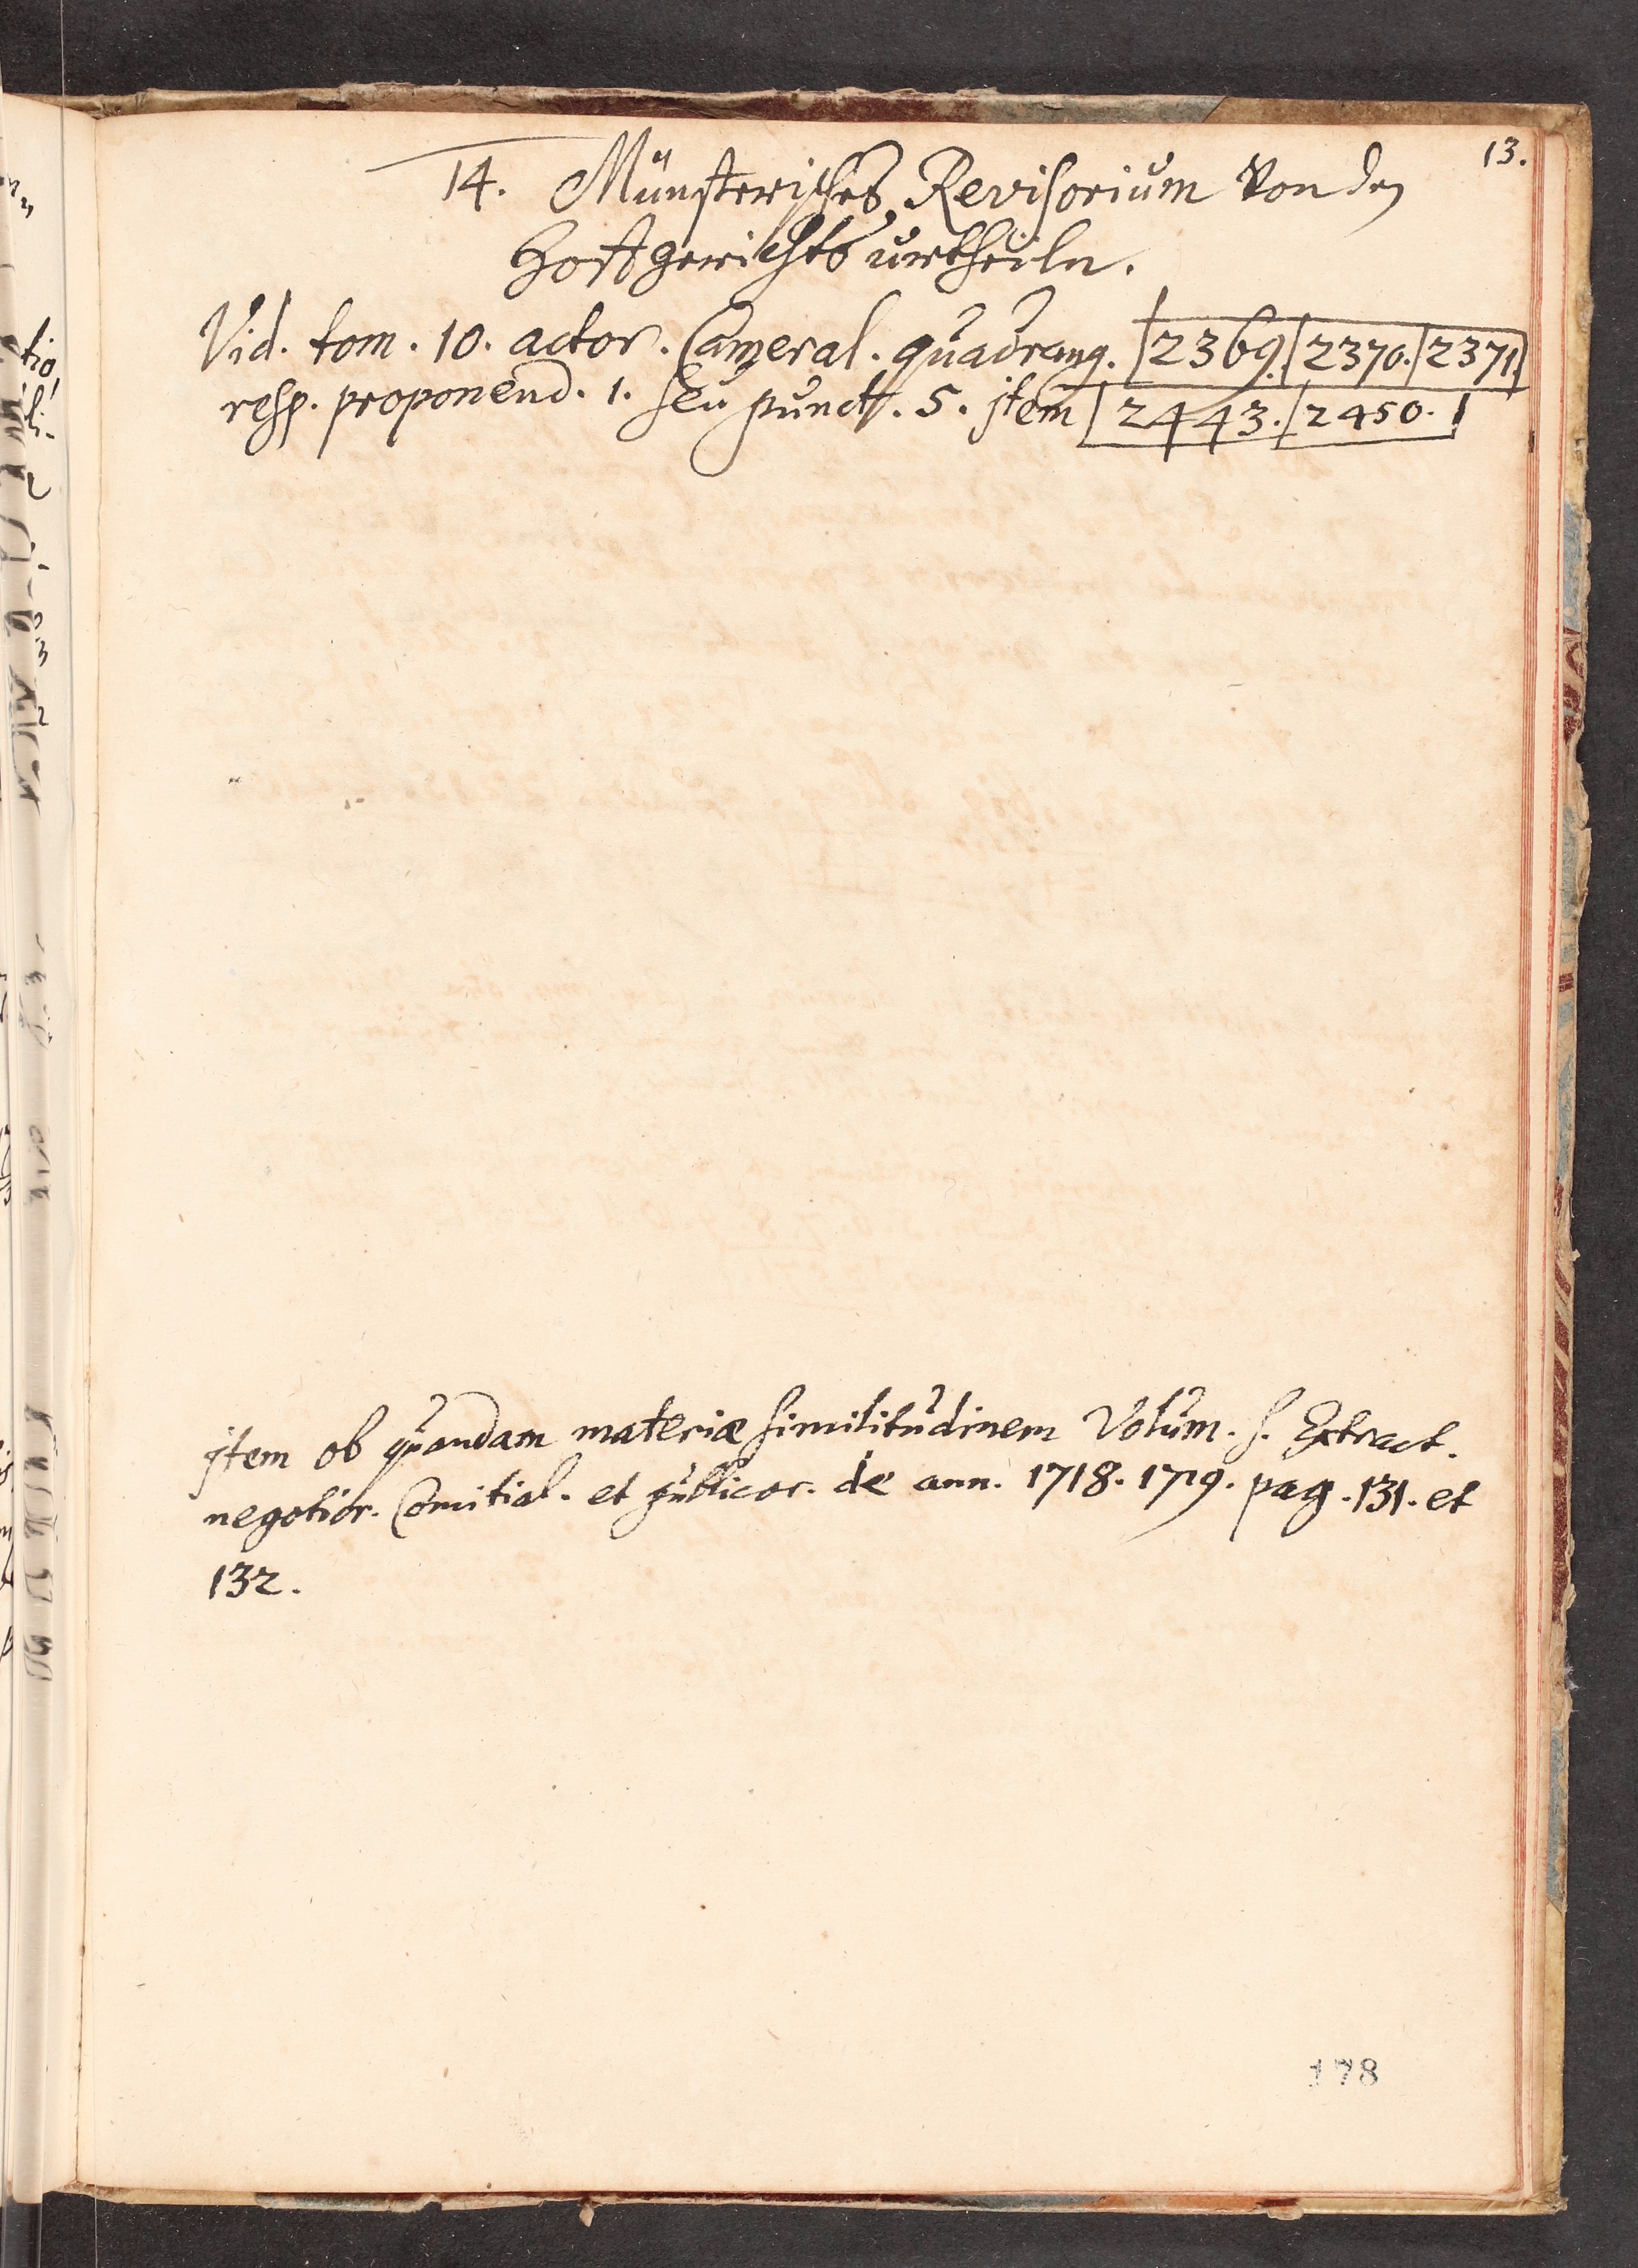 13.
14. Münsterisches Revisorium von den
Hoffgerichts urtheiln.
Vid. tom. 10. actor. Cameral. quadrang. |2369.|2370.|2371|
resp. proponend. 1. seu punct. 5. jtem |2443.|2450.|
jtem ob quandam materiæ similitudinem Volum. s. Extract.
negotior. Comitial. et publicor. de ann. 1718. 1719. pag. 131. et
132.
178